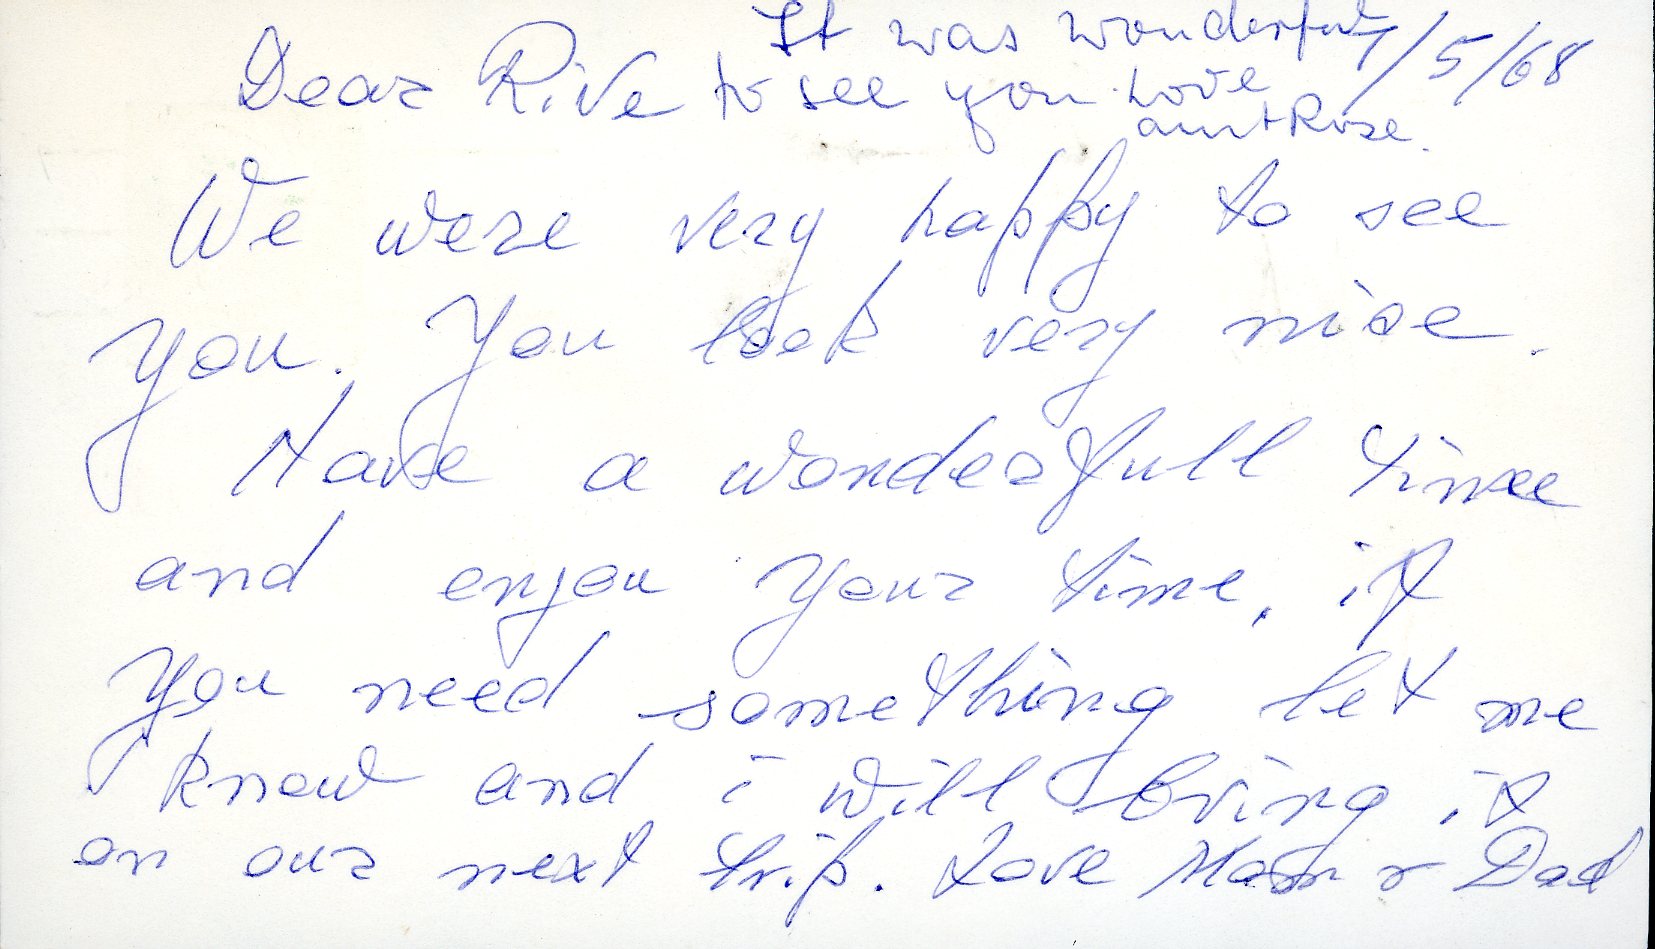 It was wonderful 7/5/68
Dear Rive to see you. Love
aunt Rose.
We were very happy to see
you. You look very nice.
Have a wonderfull time
and enjou your time, if
you need something let me
know and i will bring it
on our next trip. Love Mom & Dad